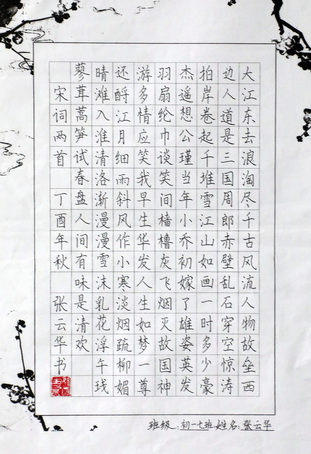 大江东去浪淘尽千古风流人物故垒西
边人道是三国周郎赤壁乱石穿空惊涛
拍岸卷起千堆雪江山如画一时多少豪
杰遥想公瑾当年小乔初嫁了雄姿英发
羽扇纶巾谈笑间樯橹灰飞烟灭故国神
游多情应笑我早生华发人生如梦一尊
还酹江月细雨斜风作小寒淡烟疏柳媚
晴滩入淮清洛渐漫漫雪沫乳花浮午
蓼茸蒿笋试春盘人间有味是清欢
宋词两首 丁酉年秋 张云华书
班级:初一七班 姓名:张云华